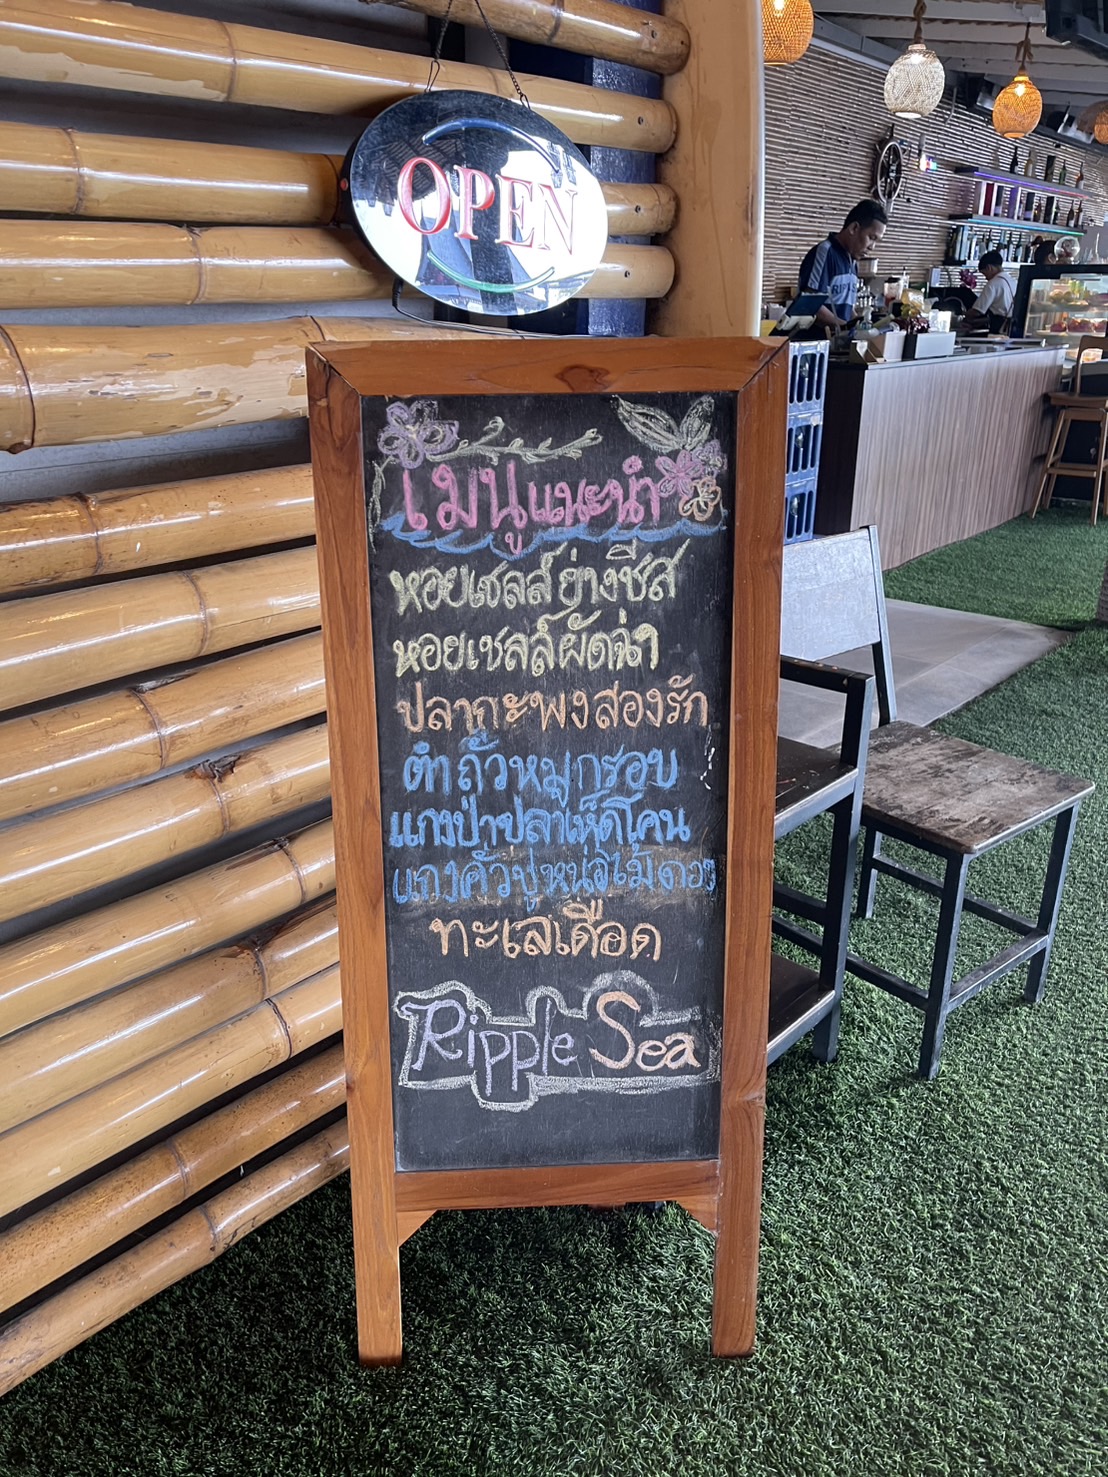 OPEN
เมนูแนะนำ
หอยเชลล์ย่างชีส
หอยเชลล์ผัดฉ่า
ปลากะพงสองรัก
ตำถั่วหมูกรอบ
แกงป่าปลาเห็ดโคน
แกงคั่วปูหน่อไม้ดอง
ทะเลเดือด
Ripple Sea